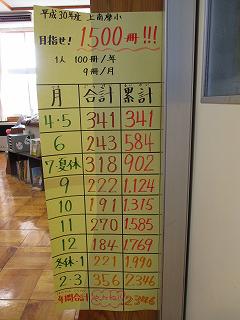 平成30年度 上南摩小
目指せ! 1500冊!!!
1人 100冊/年
9冊/月
月 合計 累計
4・5 341 341
6 243 584
7・夏休 318 902
9 222 1,124
10 191 1,315
11 270 1,585
12 184 1769
冬休・1 221 1,990
2・3 356 2,346
年間合計 2346